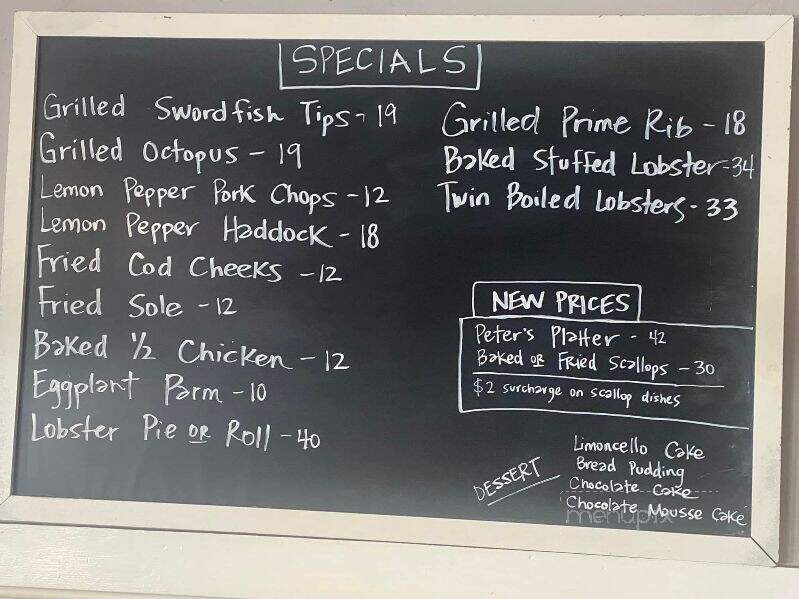 SPECIALS
Grilled Swordfish Tips - 19
Grilled Octopus - 19
Lemon Pepper Pork Chops - 12
Lemon Pepper Haddock - 18
Fried Cod Cheeks - 12
Fried Sole - 12
Baked 1/2 Chicken - 12
Eggplant Parm - 10
Lobster Pie or Roll - 40
Grilled Prime Rib - 18
Baked Stuffed Lobster - 34
Twin Boiled Lobsters - 33
NEW PRICES
Peter's Platter - 42
Baked or Fried Scallops - 30
$2 surcharge on scallop dishes
DESSERT
Limoncello Cake
Bread Pudding
Chocolate Cake
Chocolate Mousse Cake
menupix